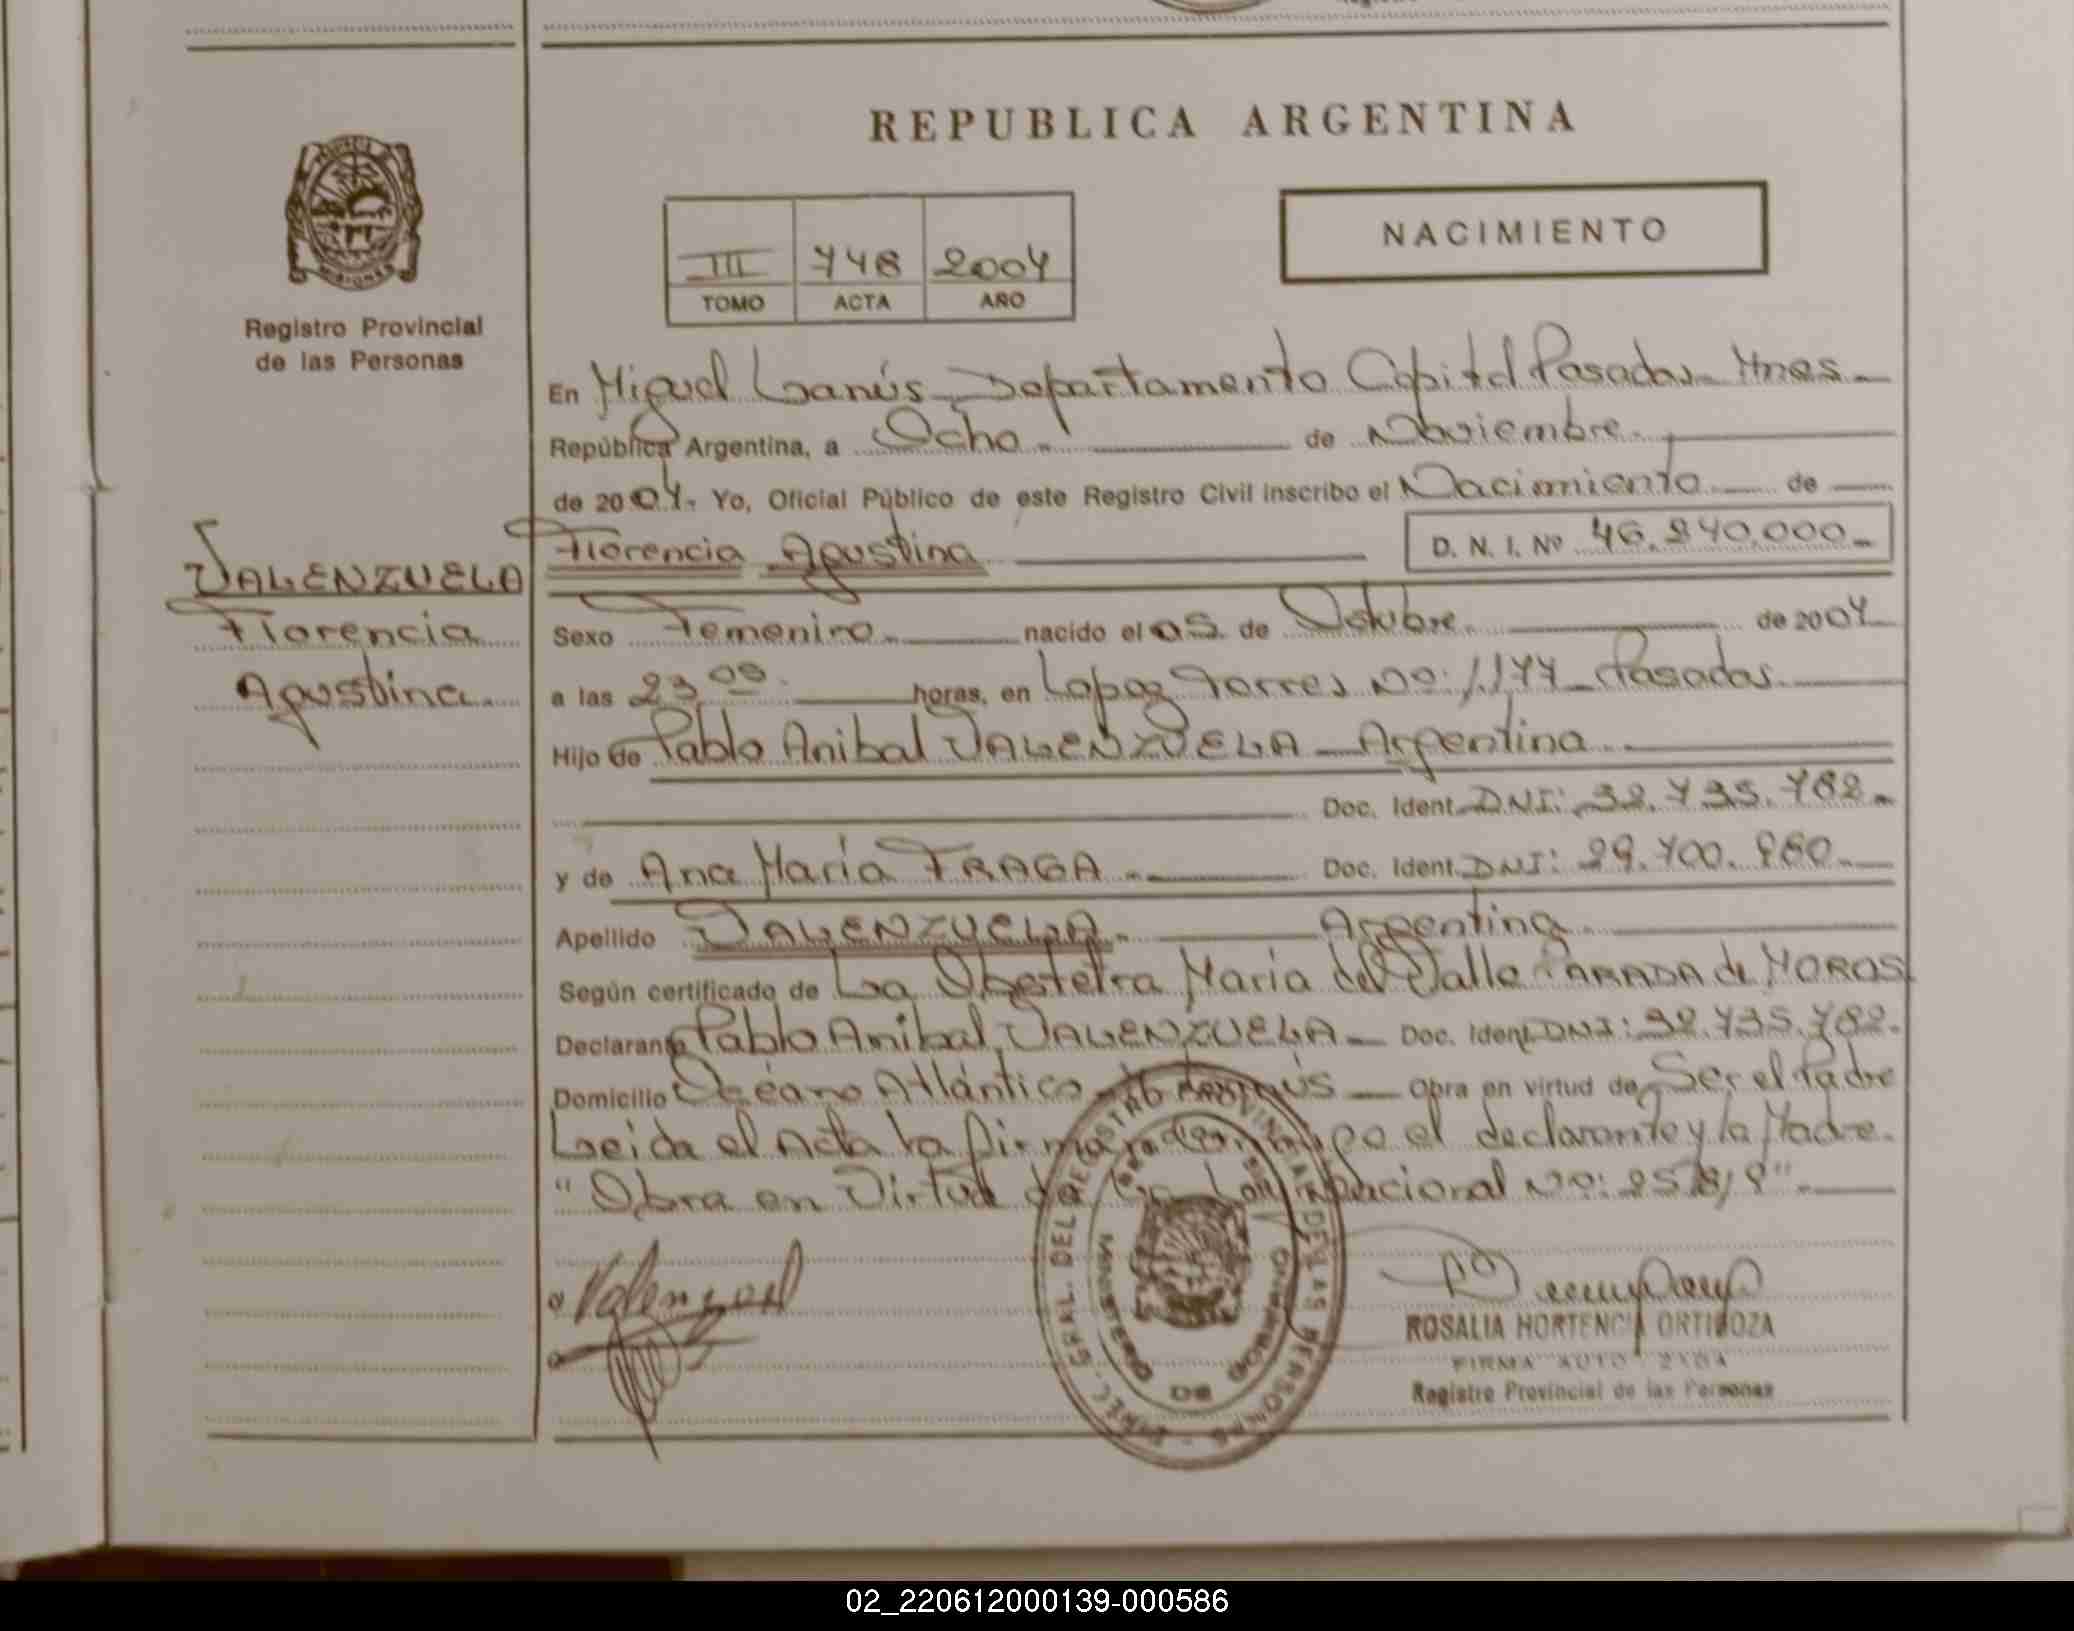 REPUBLICA ARGENTINA
NACIMIENTO
III 748 2004
TOMO ACTA AÑO
Registro Provincial
de las Personas
En Miguel Lanús Departamento Capital Posadas Mnes
República Argentina, a Ocho de Noviembre
de 2004. Yo, Oficial Público de este Registro Civil inscribo el Nacimiento de
Florencia Agustina
D. N. I. Nº 46.240.000
VALENZUELA
Florencia
Agustina
Sexo Femenino nacido el 05 de Octubre de 2004
a las 23 00 horas, en Lopez Torres Nº: 1177 Posadas
Hijo de Pablo Anibal VALENZUELA Argentina
Doc. Ident. DNI: 32.735.782
y de Ana Maria FRAGA Doc. Ident. DNI: 29.700.
Apellido VALENZUELA Argentina
Según certificado de La Obstetra Maria del Valle PARADA de MOROS
Declarante Pablo Anibal VALENZUELA Doc. Ident. DNI: 32.735.782
Domicilio Océano Atlántico Obra en virtud de Ser el Padre
Leida el Acta la firma el declarante y la Madre.
"Obra en Virtud de La Ley Nacional Nº:
Valenzuel
ROSALIA HORTENCIA ORTIGOZA
FIRMA AUTO
Registro Provincial de las Personas
02_220612000139-000586